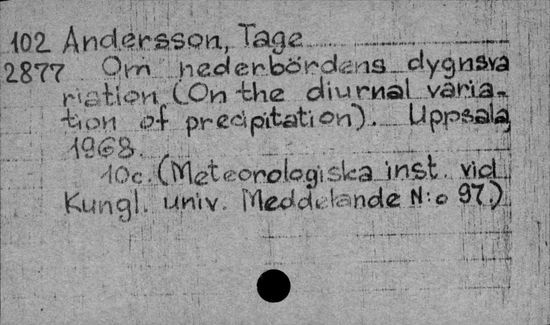 102 Andersson, Tage
2877 Om nederbördens dygnsva
riation (On the diurnal varia-
tion of precipitation). Uppsala
1968.
10c. (Meteorologiska inst. vid
Kungl. univ. Meddelande N:o 97.)